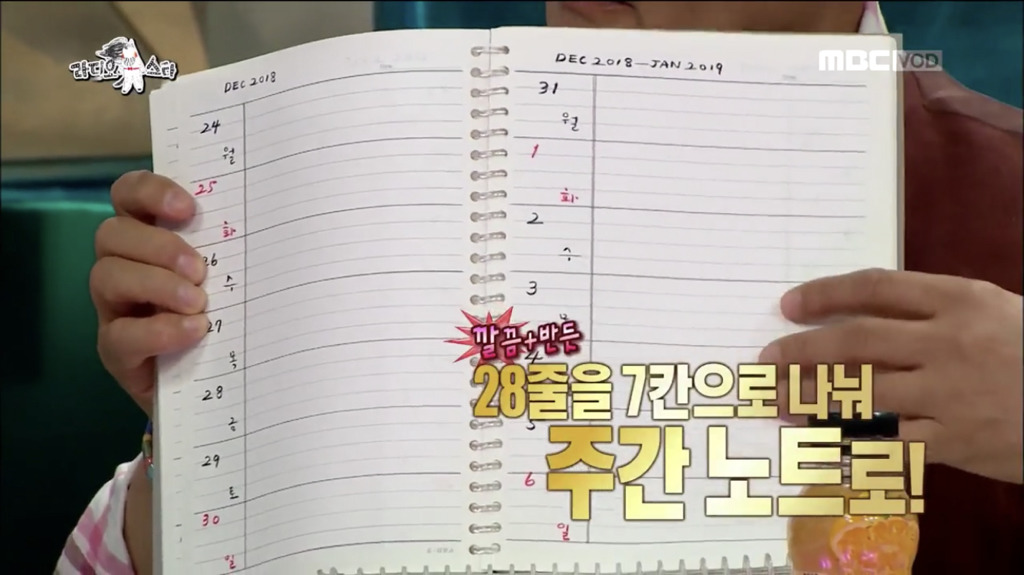 라디오스타
MBC VOD
DEC 2018
24
월
25
화
26
수
27
목
28
금
29
토
30
일
DEC 2018-JAN 2019
31
월
1
화
2
수
3
목
4
5
6
일
깔끔+반듯
28줄을 7칸으로 나눠
주간 노트로!